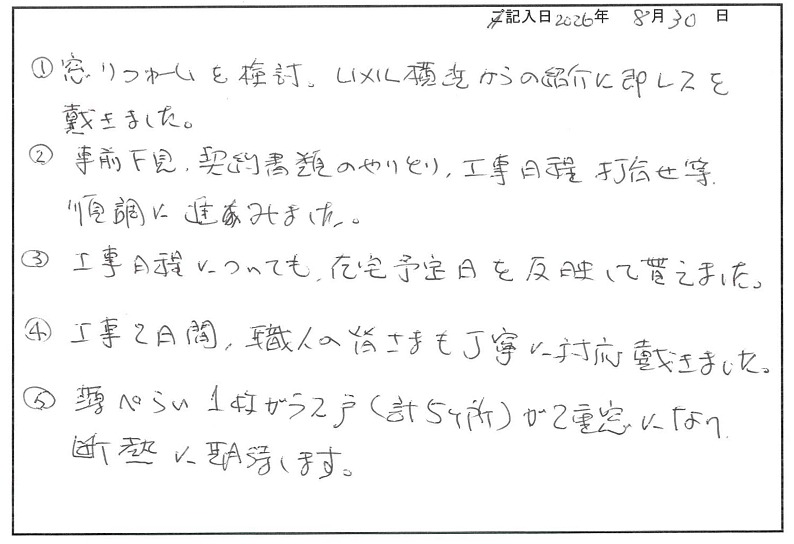 ご記入日2026年 8月30日
①窓リフォームを検討。LIXIL横浜からの紹介に即レスを
戴きました。
②事前下見、契約書類のやりとり、工事日程打合せ等、
順調に進みました。
③工事日程についても、在宅予定日を反映して貰えました。
④工事2日間、職人の皆さまも丁寧に対応戴きました。
⑤薄ぺらい1枚ガラス戸(計5ヶ所)が2重窓になり、
断熱に期待します。